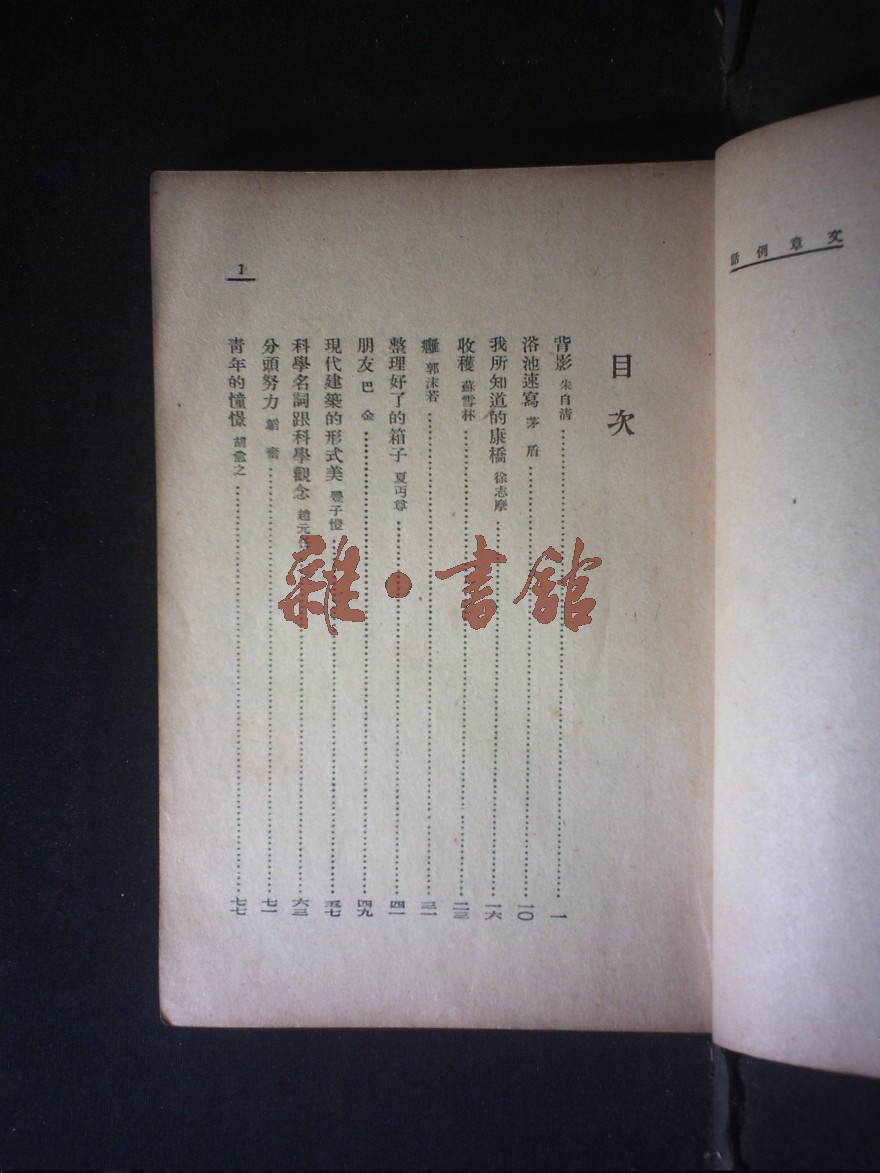 文章例話
目次
背影 朱自清……一
浴池速寫 茅盾……一〇
我所知道的康橋 徐志摩……一六
收穫 蘇雪林……二三
癰 郭沫若……三一
整理好了的箱子 夏丏尊……四一
朋友 巴金……四九
現代建築的形式美 豐子愷……五七
科學名詞跟科學觀念 趙元……六三
分頭努力 韜奮……七一
青年的憧憬 胡愈之……七七
1
雜·書館